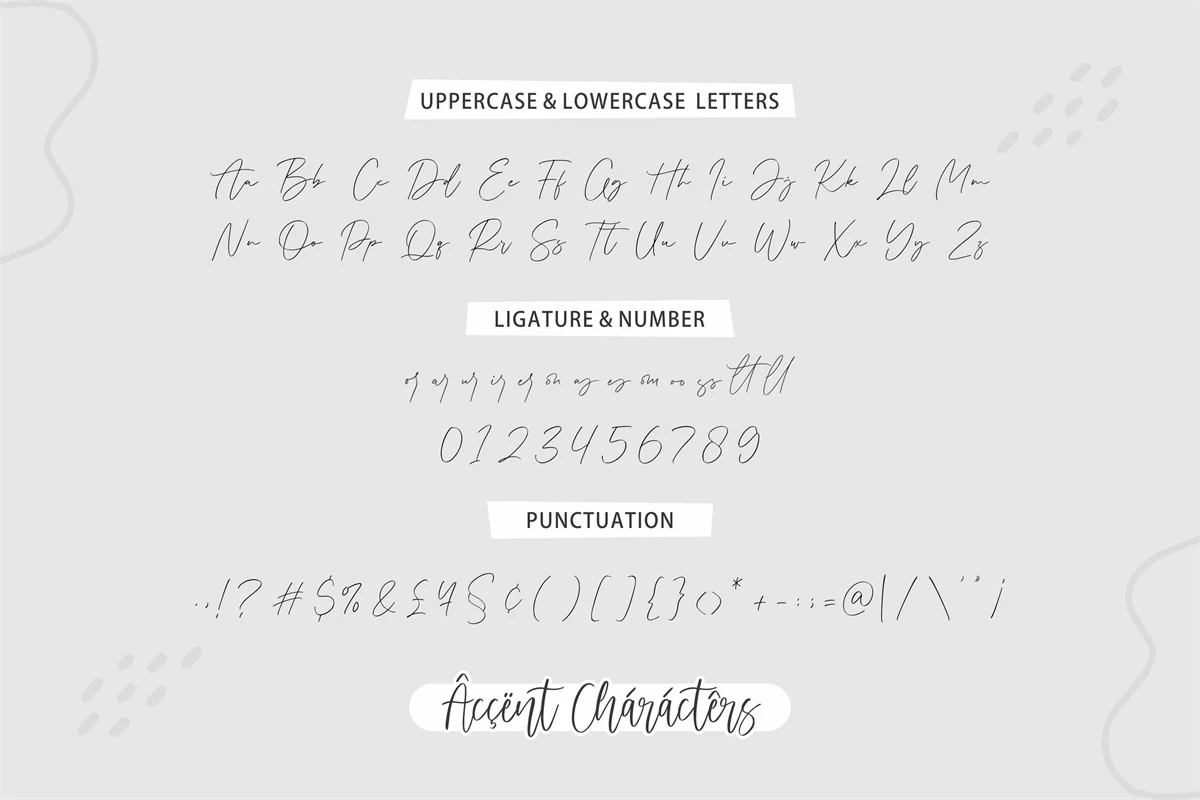 UPPERCASE & LOWERCASE LETTERS
Aa Bb Cc Dd Ee Ff Gg Hh Ii Jj Kk Ll Mm
Nn Oo Pp Qq Rr Ss Tt Uu Vv Ww Xx Yy Zz
LIGATURE & NUMBER
or ar ur ir er on as es om oo ss tt ll
0123456789
PUNCTUATION
.,!?#$%&£¥§¢()[]{}<>*+-:;=@|/\'"¡
Âççënt Cháráctêrs